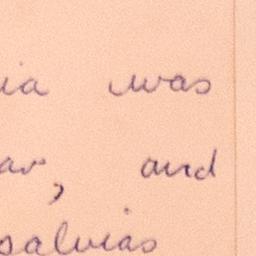 ia was
ar, and
salvias